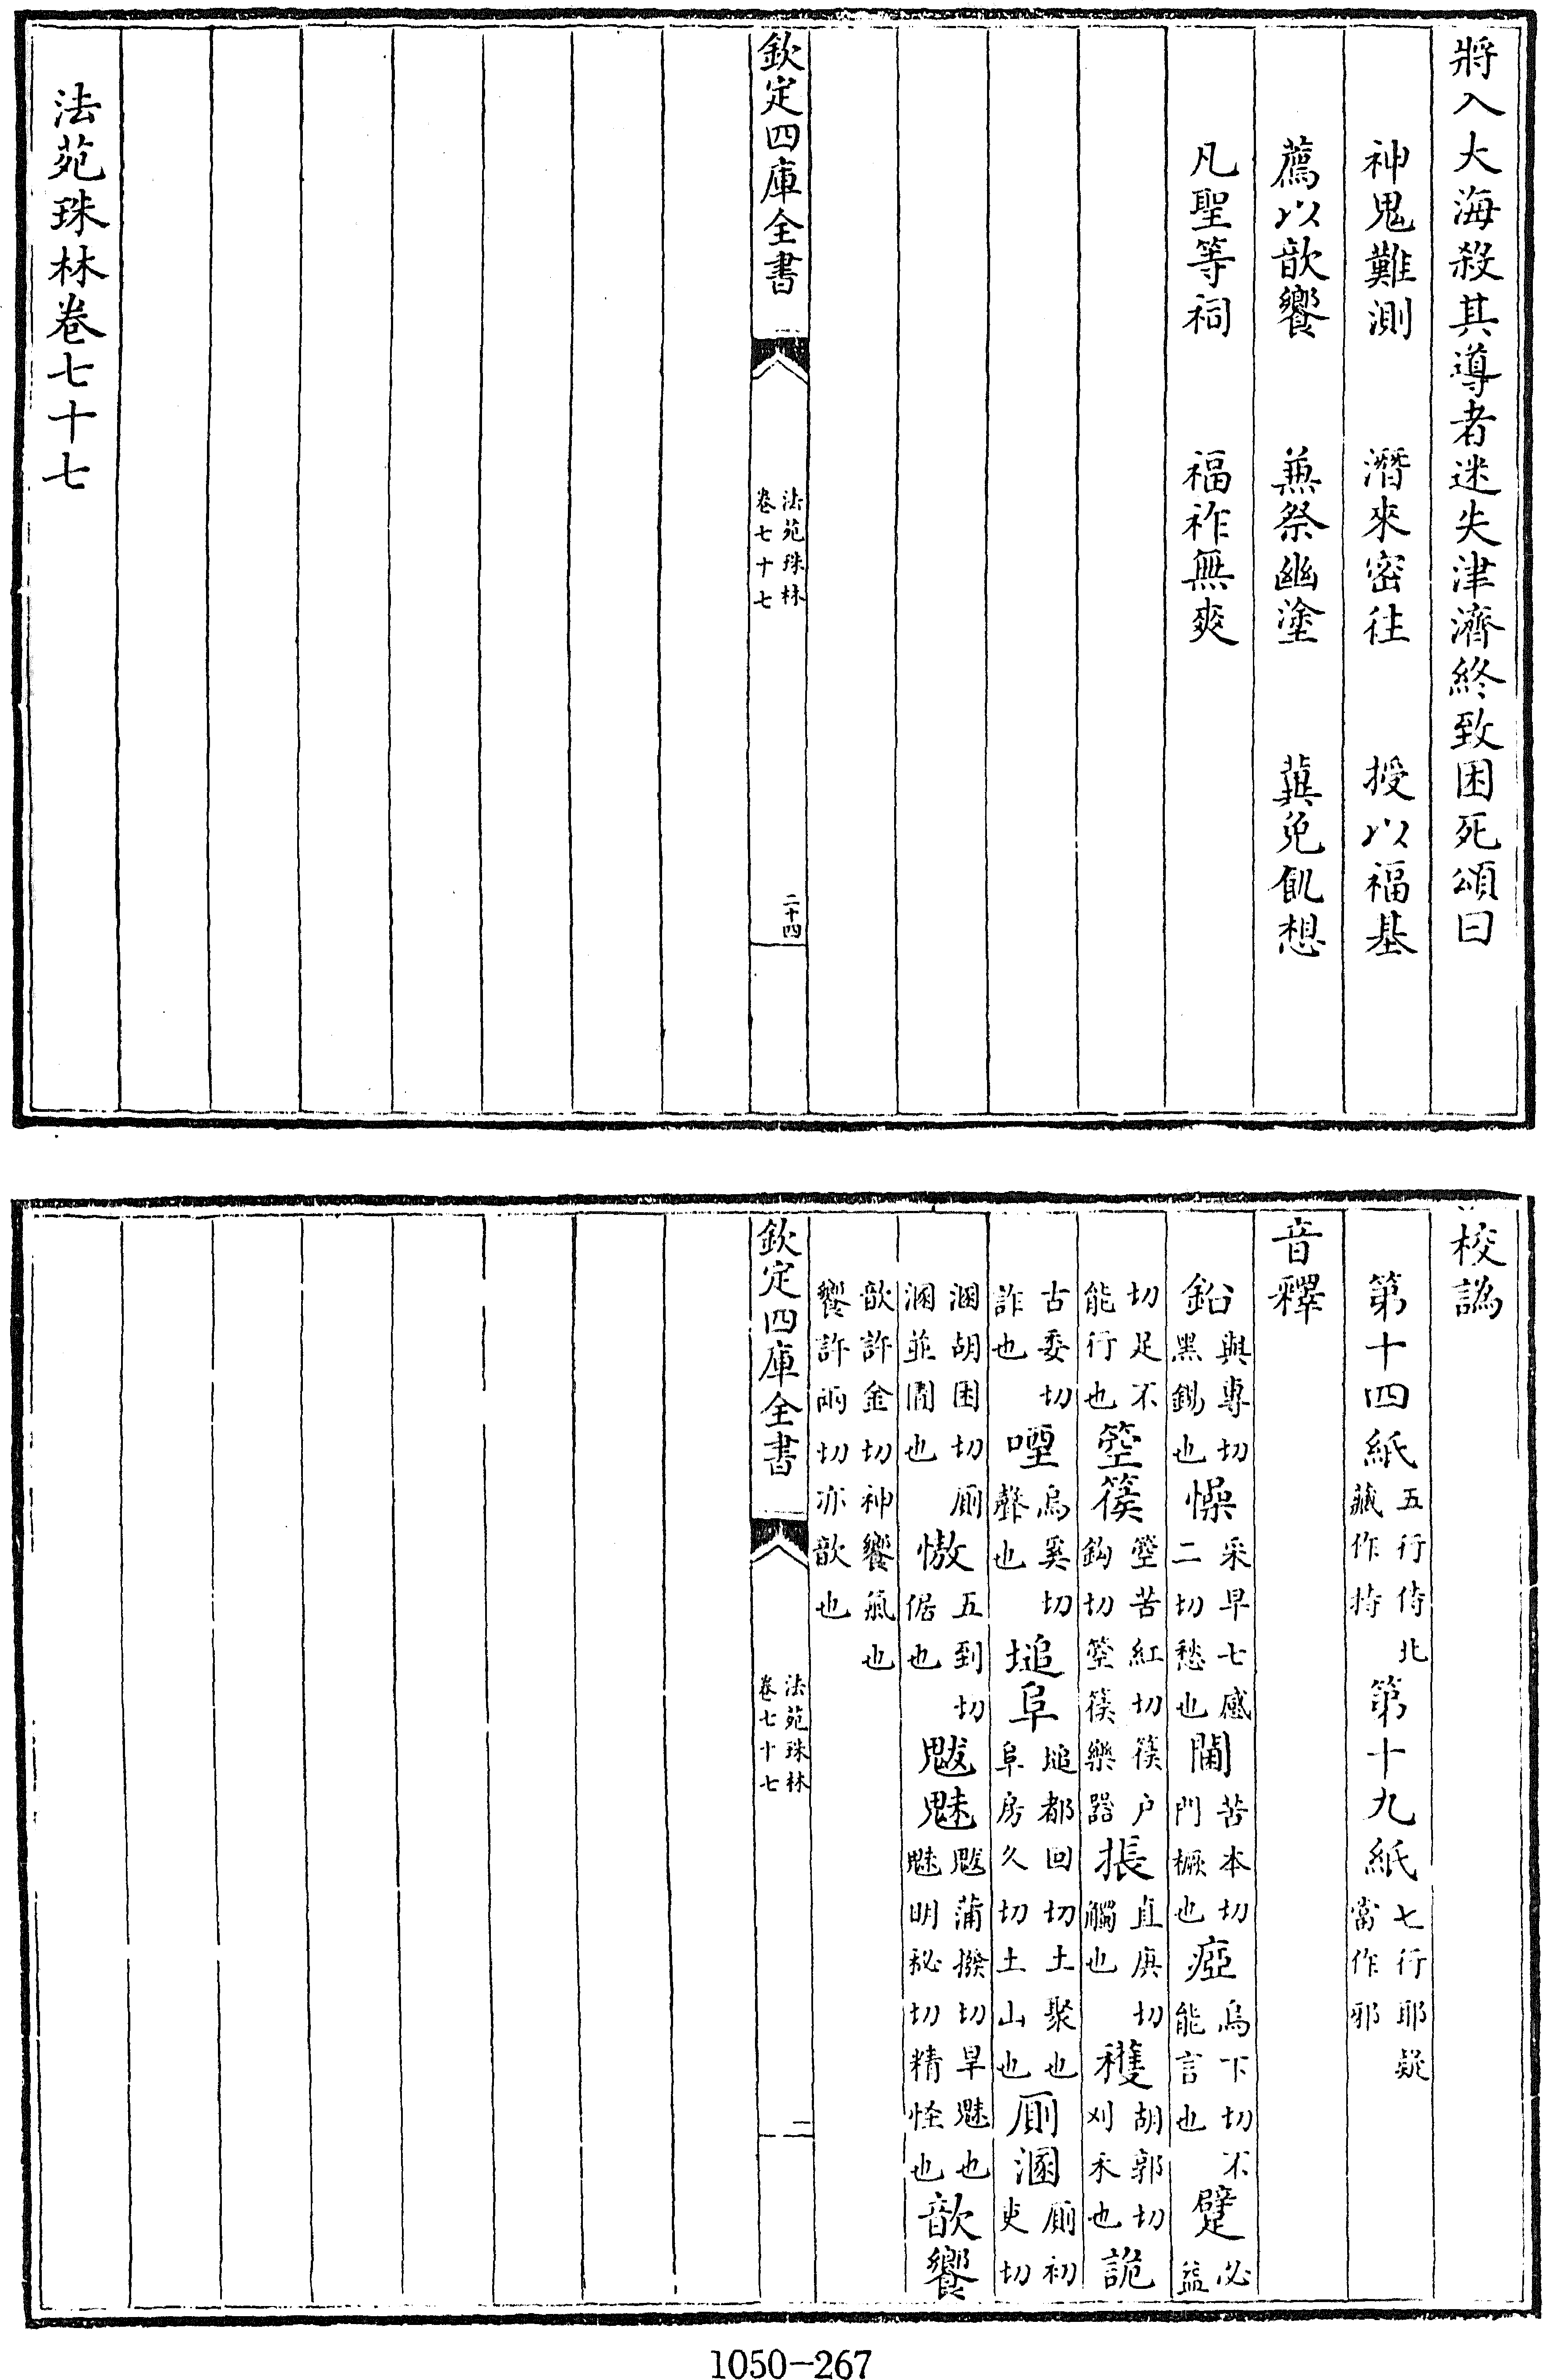 將入大海殺其導者迷失津濟終致困死頌曰
神鬼難測　潛來密往　授以福基
薦以歆饗　䔥祭幽塗　冀免飢想
凡聖等祠　福祚無爽
欽定四庫全書
法苑珠林
卷七十七
二十四
法苑珠林卷七十七
校譌
第十四紙五行侍北藏作持第十九紙七行耶疑當作邪
音釋
鉛與專切黑錫也懆采早七感二切愁也閫苦本切門橛也瘂烏下切不能言也躄必益
切足不能行也箜篌箜苦紅切篌户鈎切箜篌樂器㨃直庚切觸也穫胡郭切刈禾也詭
古委切詐也㗒烏奚切聲也塠阜塠都回切土聚也阜房久切土山也厠溷厠初吏切
溷胡困切厠溷並圊也慠五到切倨也魃魅魃蒲撥切旱魃也魅明秘切精怪也歆饗
歆許金切神饗氣也饗許兩切亦歆也
欽定四庫全書
法苑珠林
卷七十七
二
1050-267